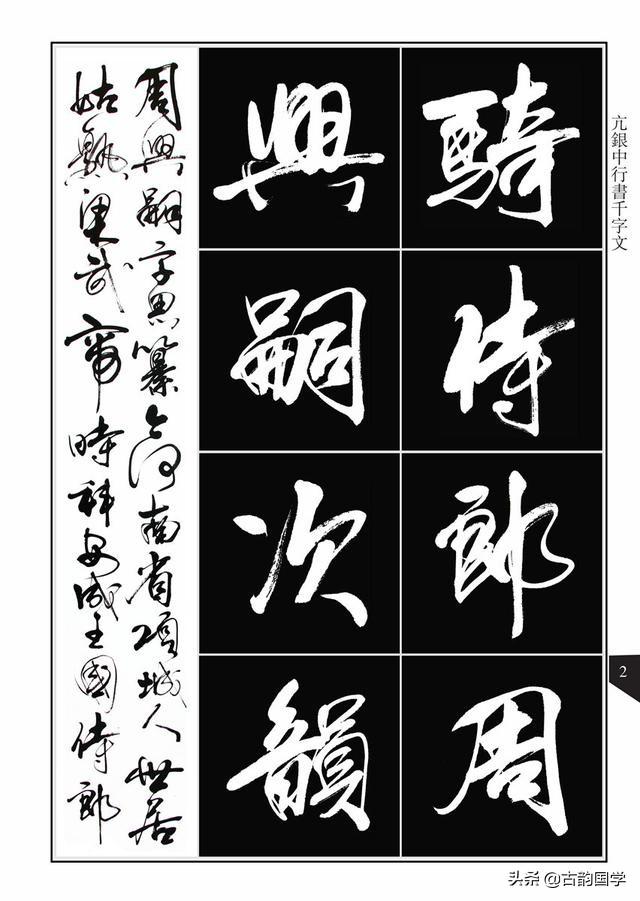 亢銀中行書千字文
騎侍郎周
興嗣次韻
周興嗣字思纂今河南省項城人世居
姑熟梁武帝時拜安成王國侍郎
2
头条 @古韵国学